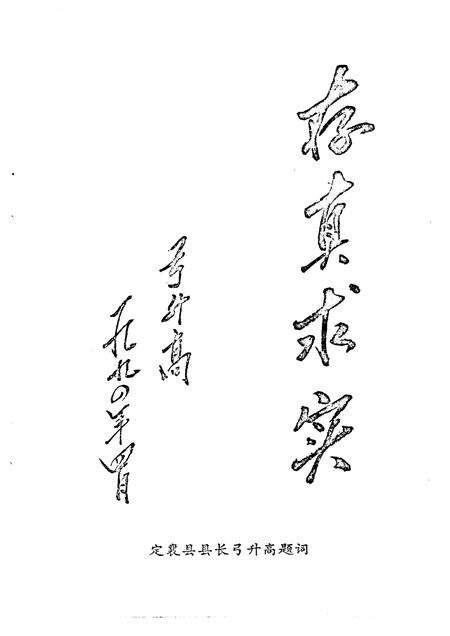 存真求实
弓升高
一九九〇年四月
定襄县县长弓升高题词